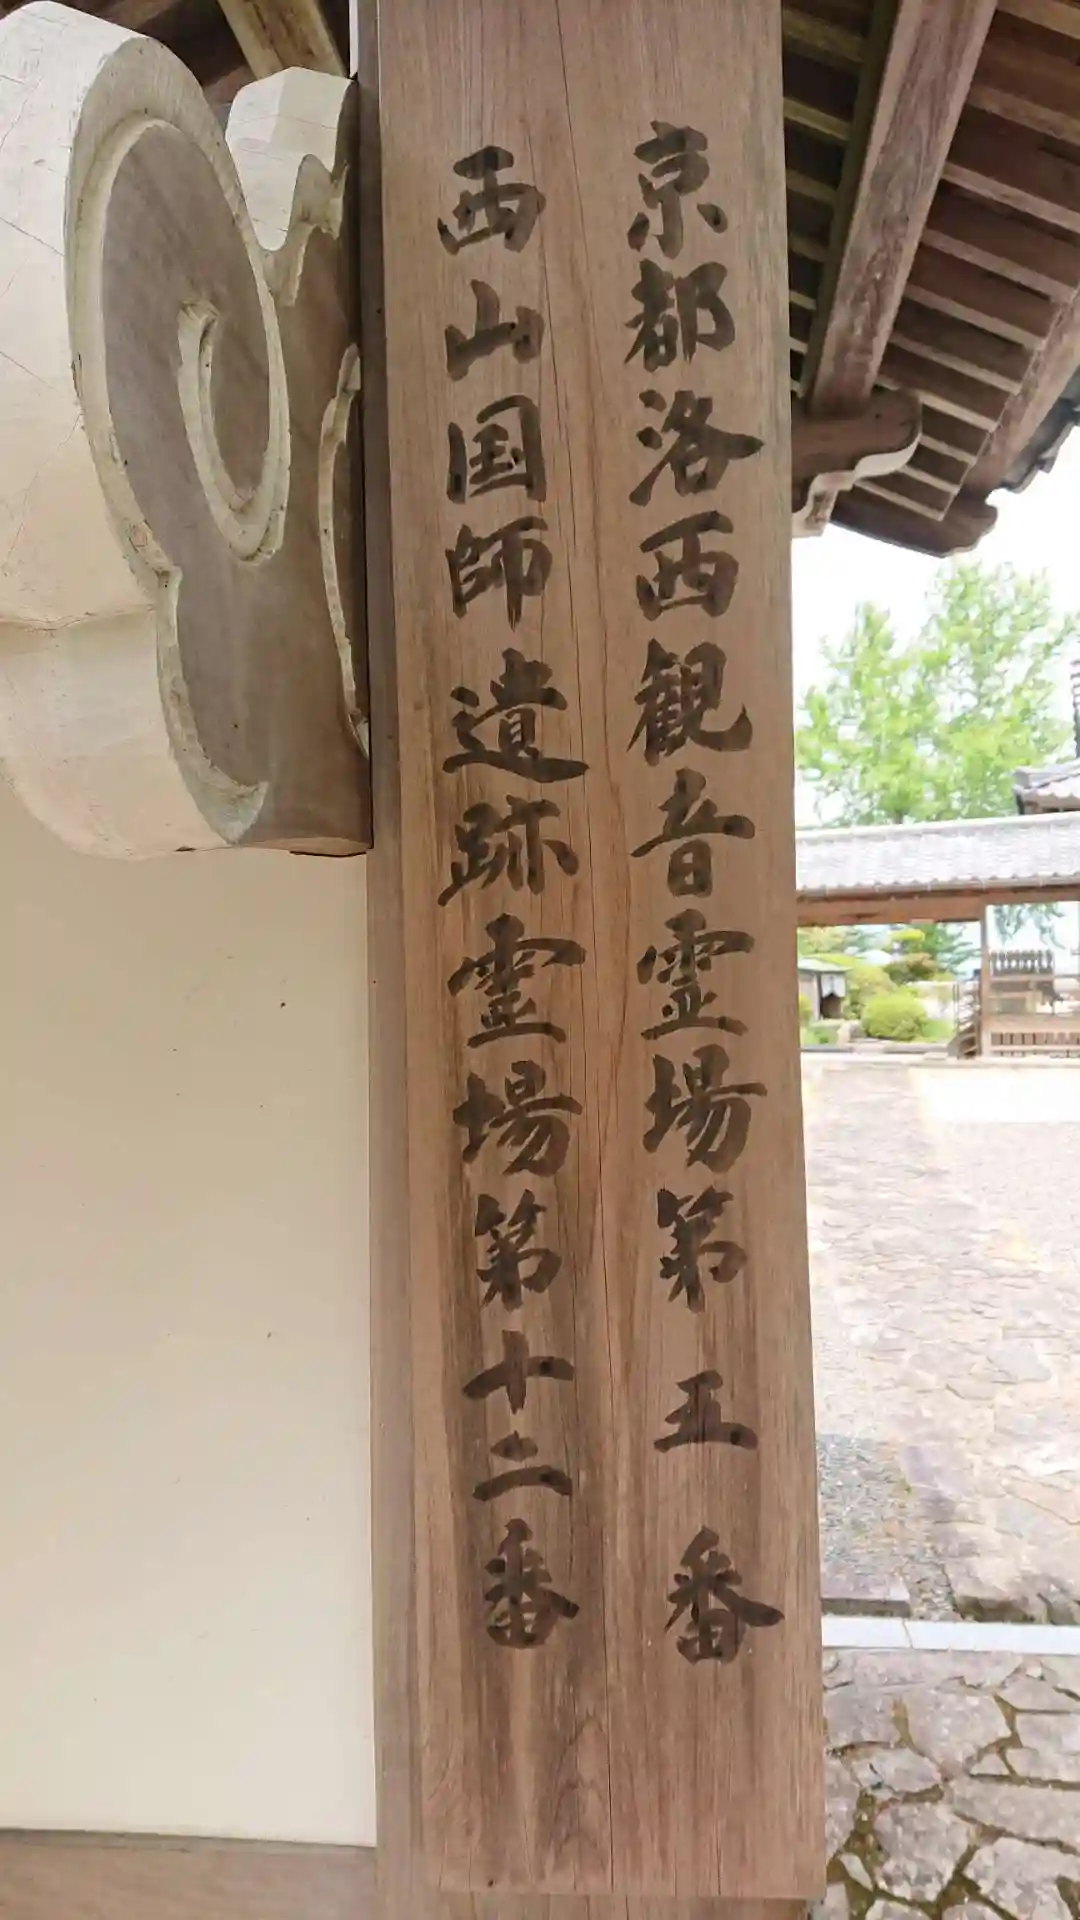 京都洛西観音霊場第五番
西山国師遺跡霊場第十二番